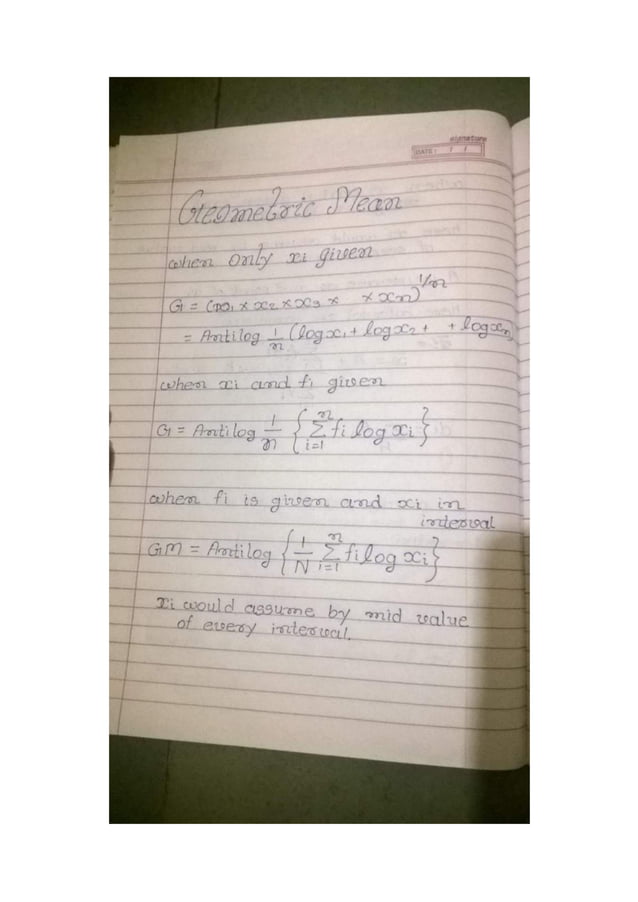 signature
DATE: / /
Geometric Mean
when only xi given
G = (x₁ × x₂ × x₃ × × xn)^1/n
= Antilog 1/n (log x₁ + log x₂ + + log xn)
when xi and fi given
G = Antilog 1/n { n Σ i=1 fi log xi }
when fi is given and xi in
interval
GM = Antilog { 1/N n Σ i=1 fi log xi }
xi would assume by mid value
of every interval.